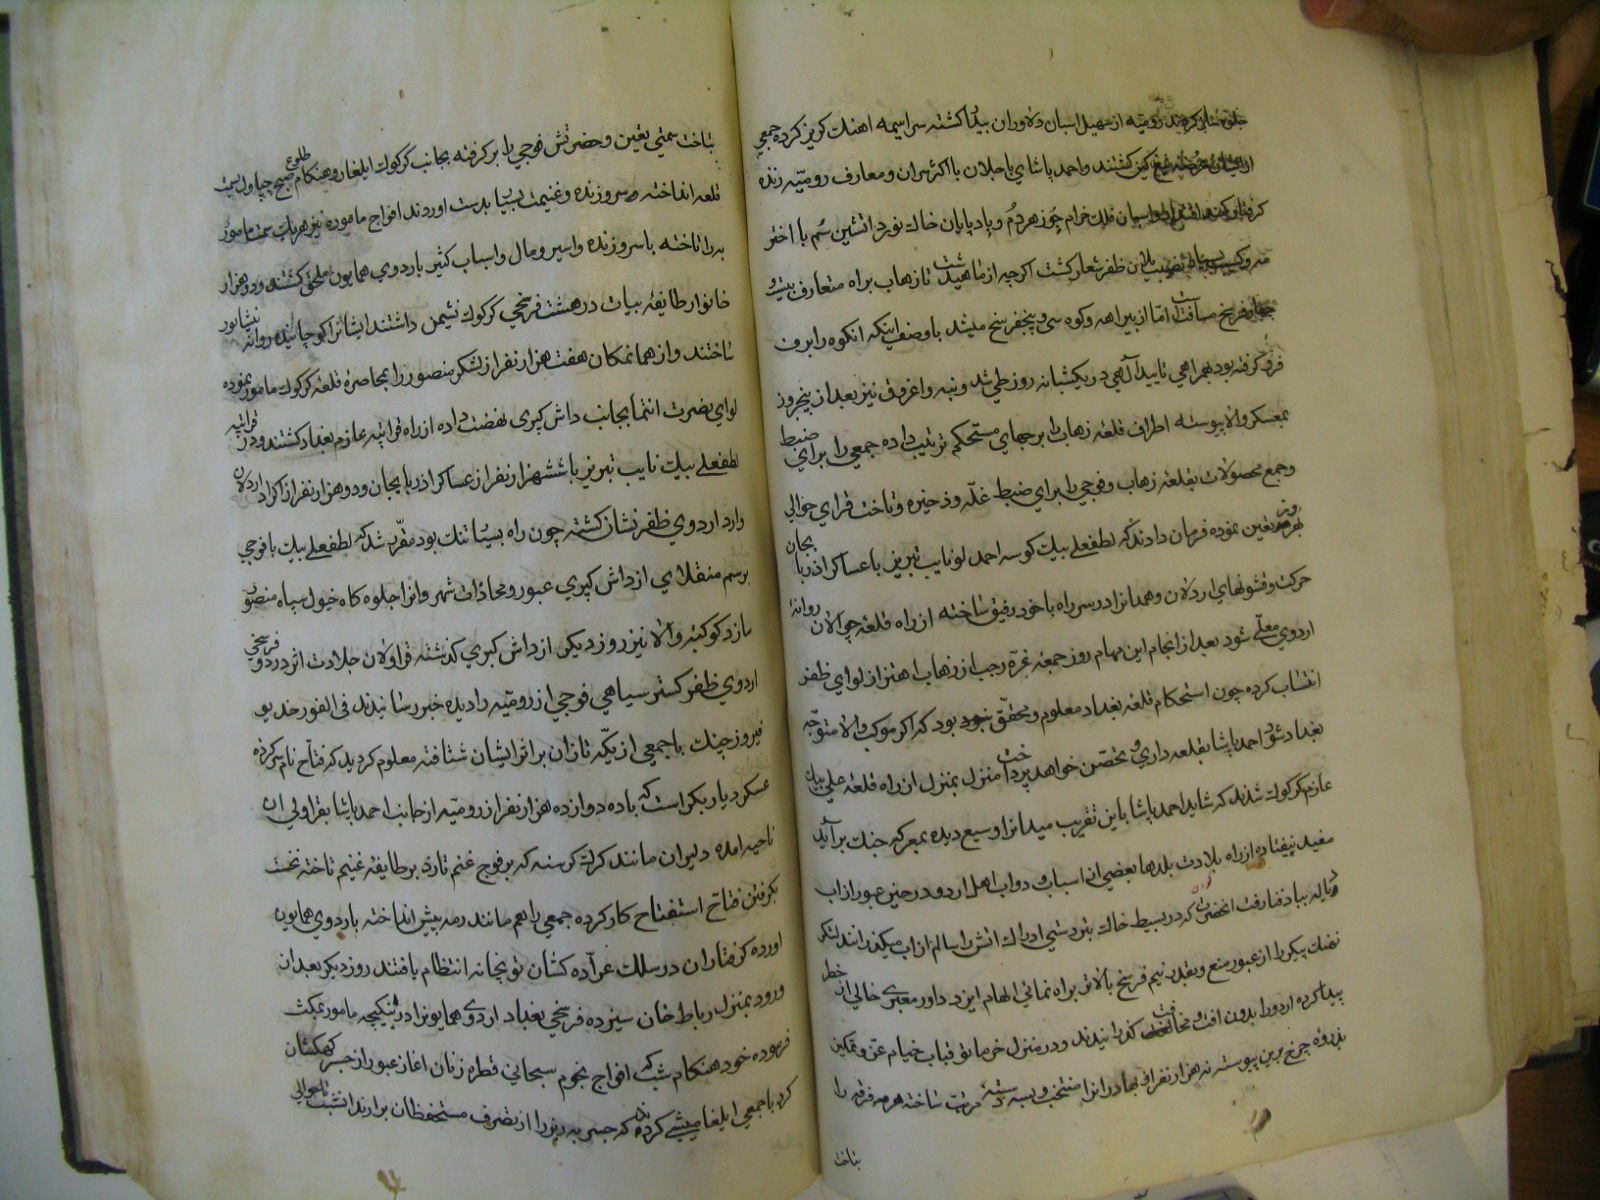 رومیه از صهیل اسبان دلاوران بیدا کشته سراسیمه اهنك کریز کرده جمعی
تیغ کین کشتند و احمد پاشای باجلان با اکثر سران و معارف رومیّه زنده
کرفتار فلك خرام چوزهردُم و پادپایان خاك نورد اتشین سُم با اختر
نصیب بلان ظفر شعار کشت اکرچه از ماهیدشت تا زهاب براه متعارف بیست و
چهار فرسخ مسافت است امّا از بیراهه و کوه سی و پنجفرسخ میشد با وصف اینکه انکوه را برف
فرو کرفته بود بهمراهی تایید الهی در یکشبانه روز طی شد و بنه و اغروق نیز بعد از پنجروز
بمعسکر والا پیوسته اطراف قلعهٔ زهاب را برجهای مستحکم ترتیب داده جمعی را برای ضبط
و جمع محصولات بقلعهٔ زهاب و فوجی را برای ضبط غلّه و ذخیره و تاخت قرای حوالی
تعین نموده فرمان دادند که لطفعلی بیك کوسه احمد لو نایب تبریز با عساکر اذربایجان
حرکت و قشونهای اردلان و همدانرا در سر راه با خود رفیق ساخته از راه قلعهٔ چوالان روانهٔ
اردوی معلّی شود بعد از انجام این مهام روز جمعه غرّهٔ رجب از زهاب اهتزاز لوای ظفر
انتساب کرده چون استحکام قلعهٔ بغداد معلوم و محقّق بود که اکر موکب والا متوجّه
بغداد شود احمد پاشا بقلعه داری و تحصّن خواهد پرداخت منزل بمنزل از راه قلعهٔ علی بیك
عازم کرکوك شدند که شاید احمد پاشا باین تقریب میدانرا وسیع دیده بمعرکه جنك بر آید
مفید نیفتاده از راه بلادت بلدها بعضی از اسباب و دواب اهل اردو در حین عبور از اب
دیاله بباد فنا رفت انحضرت که در بسیط خاك بتردستی ادراك اتش را سالم از اب میکذرانند لشکر
نصرت پیکر را از عبور منع و بقدر نیم فرسخ بالاتر براه نمائی الهام ایزد داور معبری خالی از خطر
پیدا کرده اردو را بدون افت و مخافت کذرانیدند و در منزل خرماتو قباب خیام عزّ و تمکین
بذروهٔ چرخ برین پیوسته نه هزار نفر از بهادرانرا منتخب و بسه دسته مرتّب ساخته هر سه فرقه را
بتاخت
بتاخت سمتی تعین و حضرتش فوجی را بر کرفته بجانب کرکوك ایلغار و هنکام طلوع صبح چپاول بسمت
قلعه انداخته سر و زنده و غنیمت بسیار بدست اوردند افواج ماموره نیز هر یك سمت مامور
به را تاخته با سر و زنده و اسیر و مال و اسباب کثیر باردوی همایون ملحق کشتند و دو هزار
خانوار طایفهٔ بیات در هشت فرسخی کرکوك نشیمن داشتند ایشانرا کوچانیده روانهٔ نیشابور
ساختند و از همانمکان هفت هزار نفر از لشکر منصور را بمحاصرهٔ قلعهٔ کرکوك مامور نموده
لوای نصرت انتما بجانب داش کپری نهضت داده از راه قراتپه عازم بغداد کشتند و در قراتپه
لطفعلی بیك نایب تبریز با ششهزار نفر از عساکر اذربایجان و دو هزار نفر از اکراد اردلان
وارد اردوی ظفر نشان کشته چون راه بسیار تنك بود مقرّر شد که لطفعلی بیك با فوجی
برسم منقلای از داش کپری عبور و محاذات شهروانرا جلوه کاه خیول سپاه منصور
سازد کوکبهٔ والا نیز روز دیکر از داش کپری کذشته قراولان جلادت اثر در دو فرسخی
اردوی ظفر کستر سیاهی فوجی از رومیّه را دیده خبر رسانیدند فی الفور خدیو
فیروز جنك با جمعی از یکّه تازان بر اثر ایشان شتافته معلوم کردید که فتاح نام سرکرده
عسکر دیار بکر است که با ده دوازده هزار نفر از رومیّه از جانب احمد پاشا بقراولی ان
ناحیه امده دلیران مانند کرك کرسنه که بر فوج غنم تازد بر طایفهٔ غنیم تاخته نخست
بکرفتن فتاح استفتاح کار کرده جمعی را هم مانند رمه پیش انداخته باردوی همایون
اورده کرفتاران در سلك عرّاده کشان توپخانه انتظام یافتند روز دیکر بعد از
ورود بمنزل رباط خان سیزده فرسخی بغداد اردوی همایونرا در ینکیجه مامور بمکث
فرموده خود هنکام شب که افواج نجوم سبحانی قطره زنان اغاز عبور از جسر کهکشان
کرد با جمعی ایلغامیشی کردند که جسر بهریز را از تصرف مستحفظان برارند انشب تا حوالی